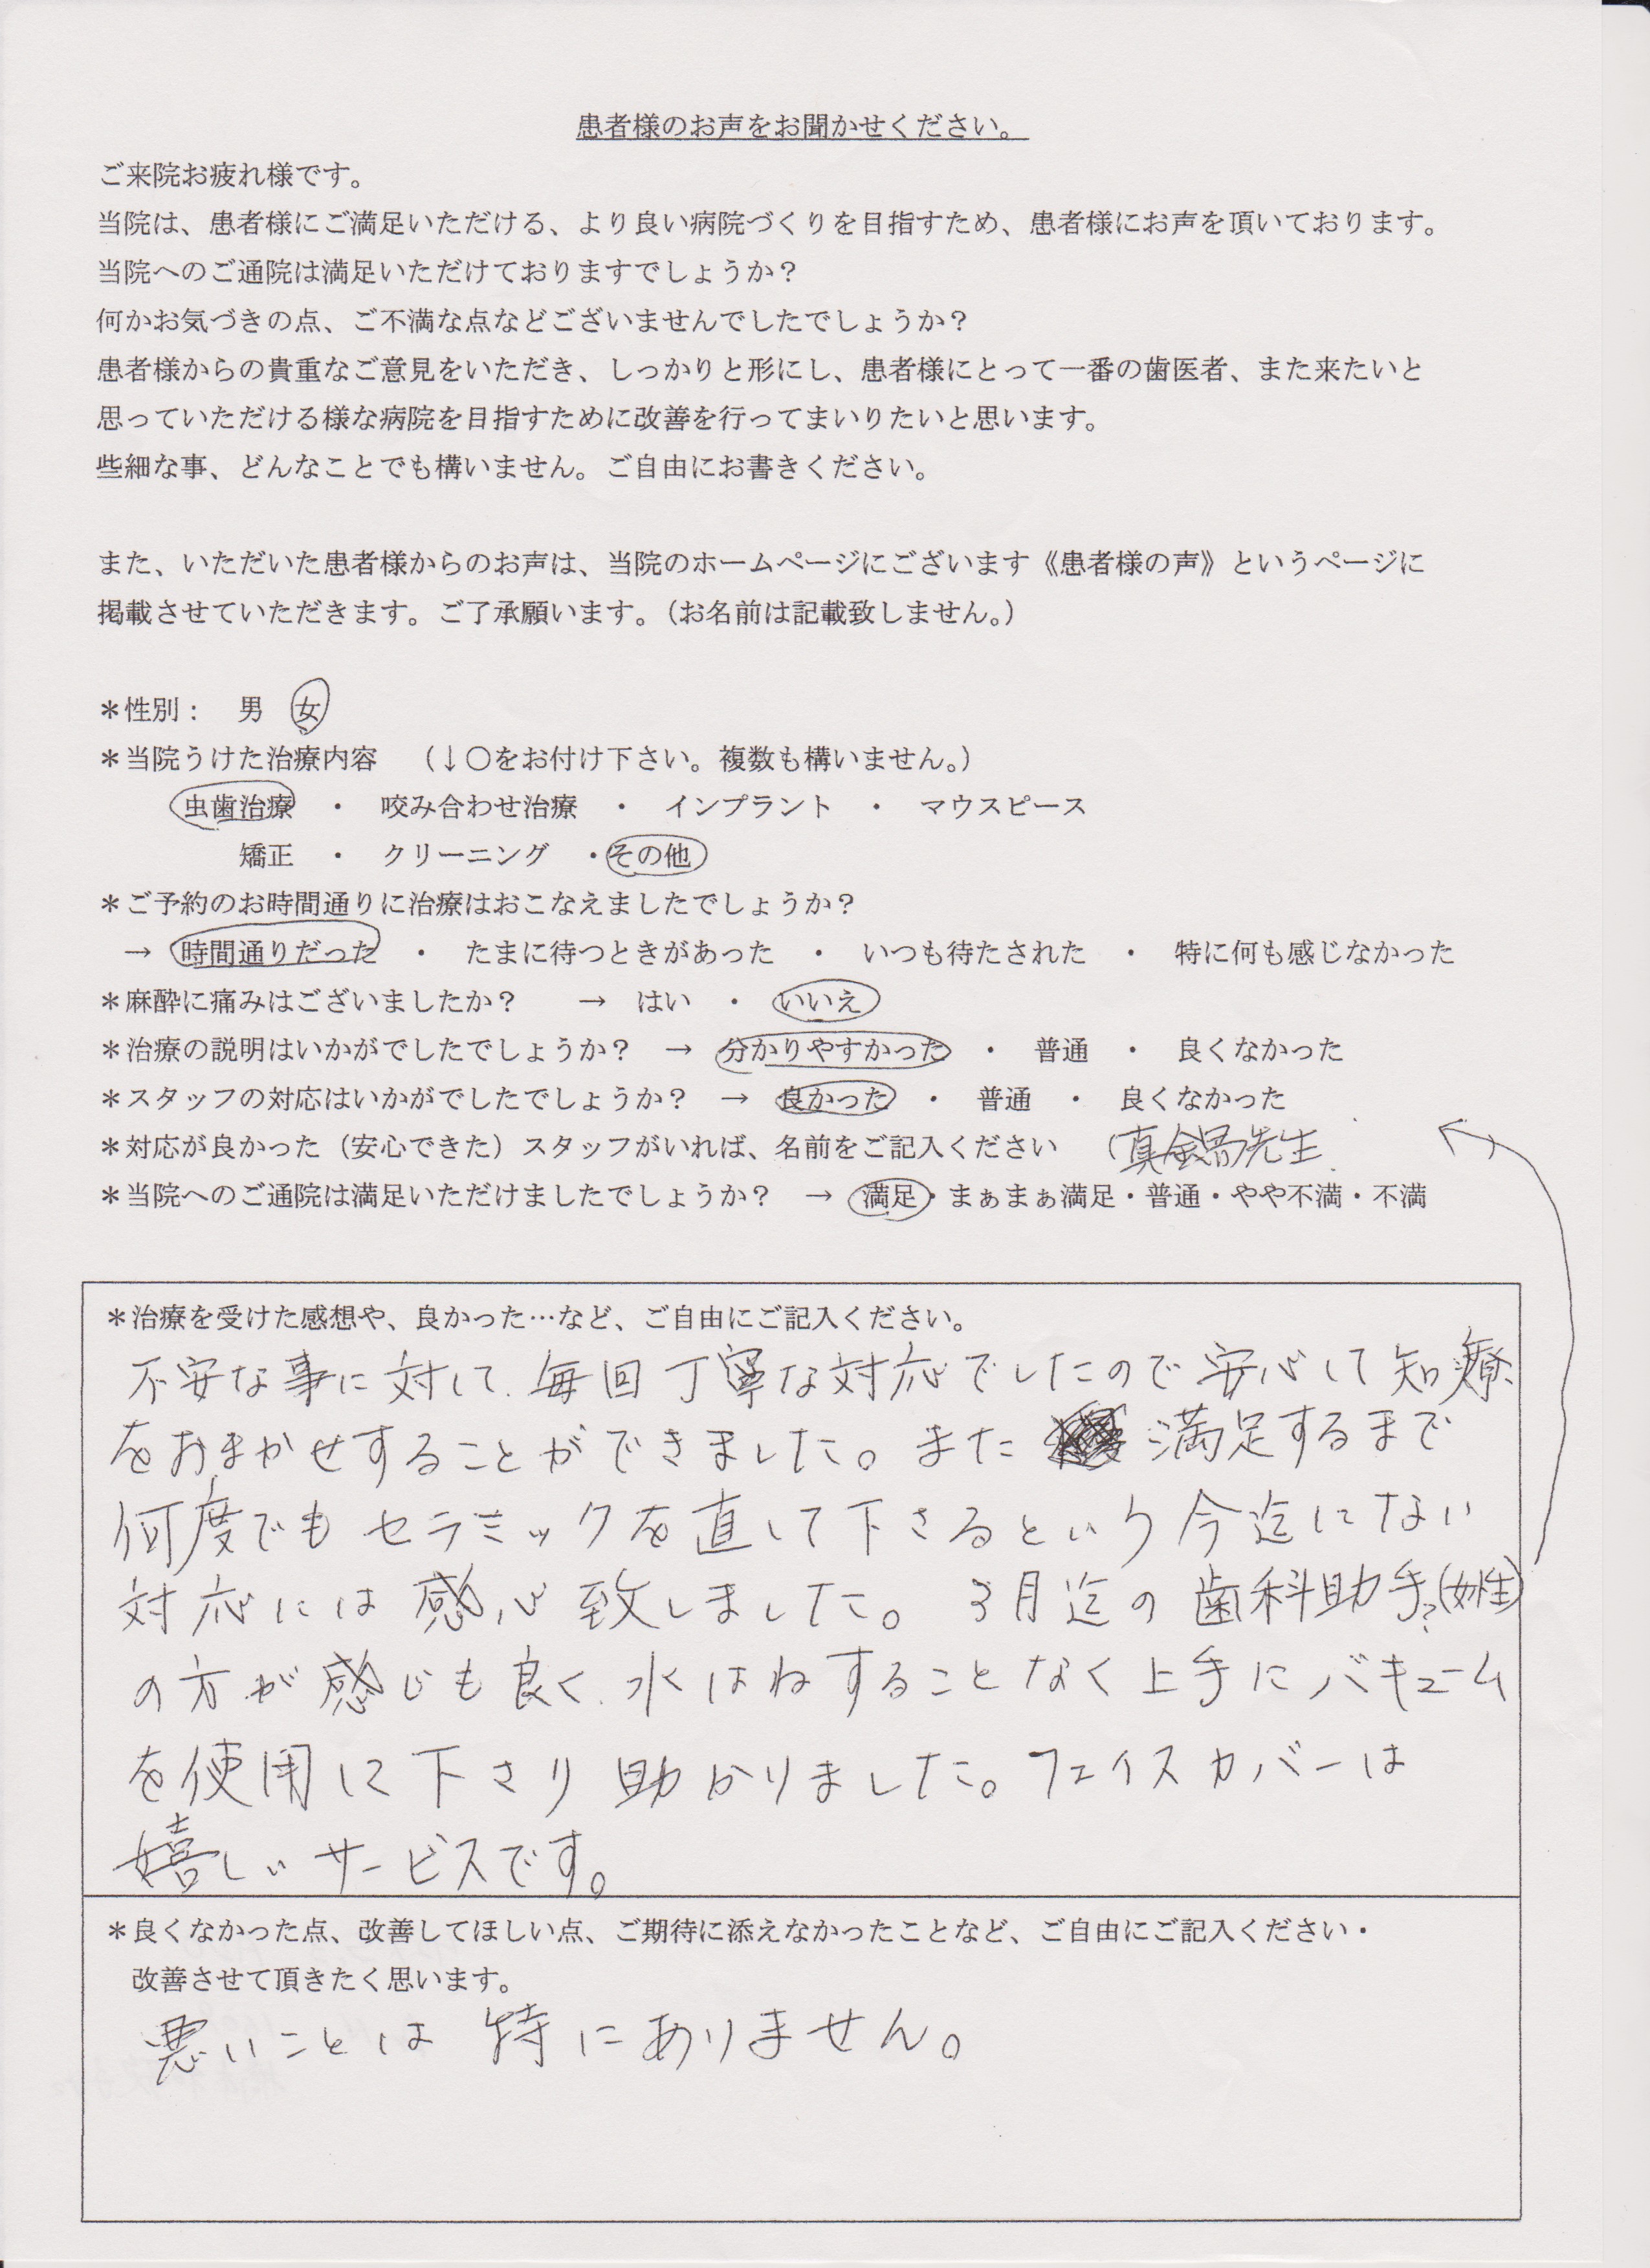 患者様のお声をお聞かせください。
ご来院お疲れ様です。
当院は、患者様にご満足いただける、より良い病院づくりを目指すため、患者様にお声を頂いております。
当院へのご通院は満足いただけておりますでしょうか？
何かお気づきの点、ご不満な点などございませんでしたでしょうか？
患者様からの貴重なご意見をいただき、しっかりと形にし、患者様にとって一番の歯医者、また来たいと
思っていただける様な病院を目指すために改善を行ってまいりたいと思います。
些細な事、どんなことでも構いません。ご自由にお書きください。
また、いただいた患者様からのお声は、当院のホームページにございます《患者様の声》というページに
掲載させていただきます。ご了承願います。（お名前は記載致しません。）
＊性別： 男 女
＊当院うけた治療内容 （↓○をお付け下さい。複数も構いません。）
虫歯治療 ・ 咬み合わせ治療 ・ インプラント ・ マウスピース
矯正 ・ クリーニング ・その他
＊ご予約のお時間通りに治療はおこなえましたでしょうか？
→ 時間通りだった ・ たまに待つときがあった ・ いつも待たされた ・ 特に何も感じなかった
＊麻酔に痛みはございましたか？ → はい ・ いいえ
＊治療の説明はいかがでしたでしょうか？ → 分かりやすかった ・ 普通 ・ 良くなかった
＊スタッフの対応はいかがでしたでしょうか？ → 良かった ・ 普通 ・ 良くなかった
＊対応が良かった（安心できた）スタッフがいれば、名前をご記入ください （真鍋先生
＊当院へのご通院は満足いただけましたでしょうか？ → 満足・まぁまぁ満足・普通・やや不満・不満
＊治療を受けた感想や、良かった…など、ご自由にご記入ください。
不安な事に対して、毎回丁寧な対応でしたので安心して知療
をおまかせすることができました。また 満足するまで
何度でもセラミックを直して下さるという今迄にない
対応には感心致しました。3月迄の歯科助手?(女性)
の方が感じも良く、水はねすることなく上手にバキューム
を使用して下さり助かりました。フェイスカバーは
嬉しいサービスです。
＊良くなかった点、改善してほしい点、ご期待に添えなかったことなど、ご自由にご記入ください・
改善させて頂きたく思います。
悪いことは特にありません。